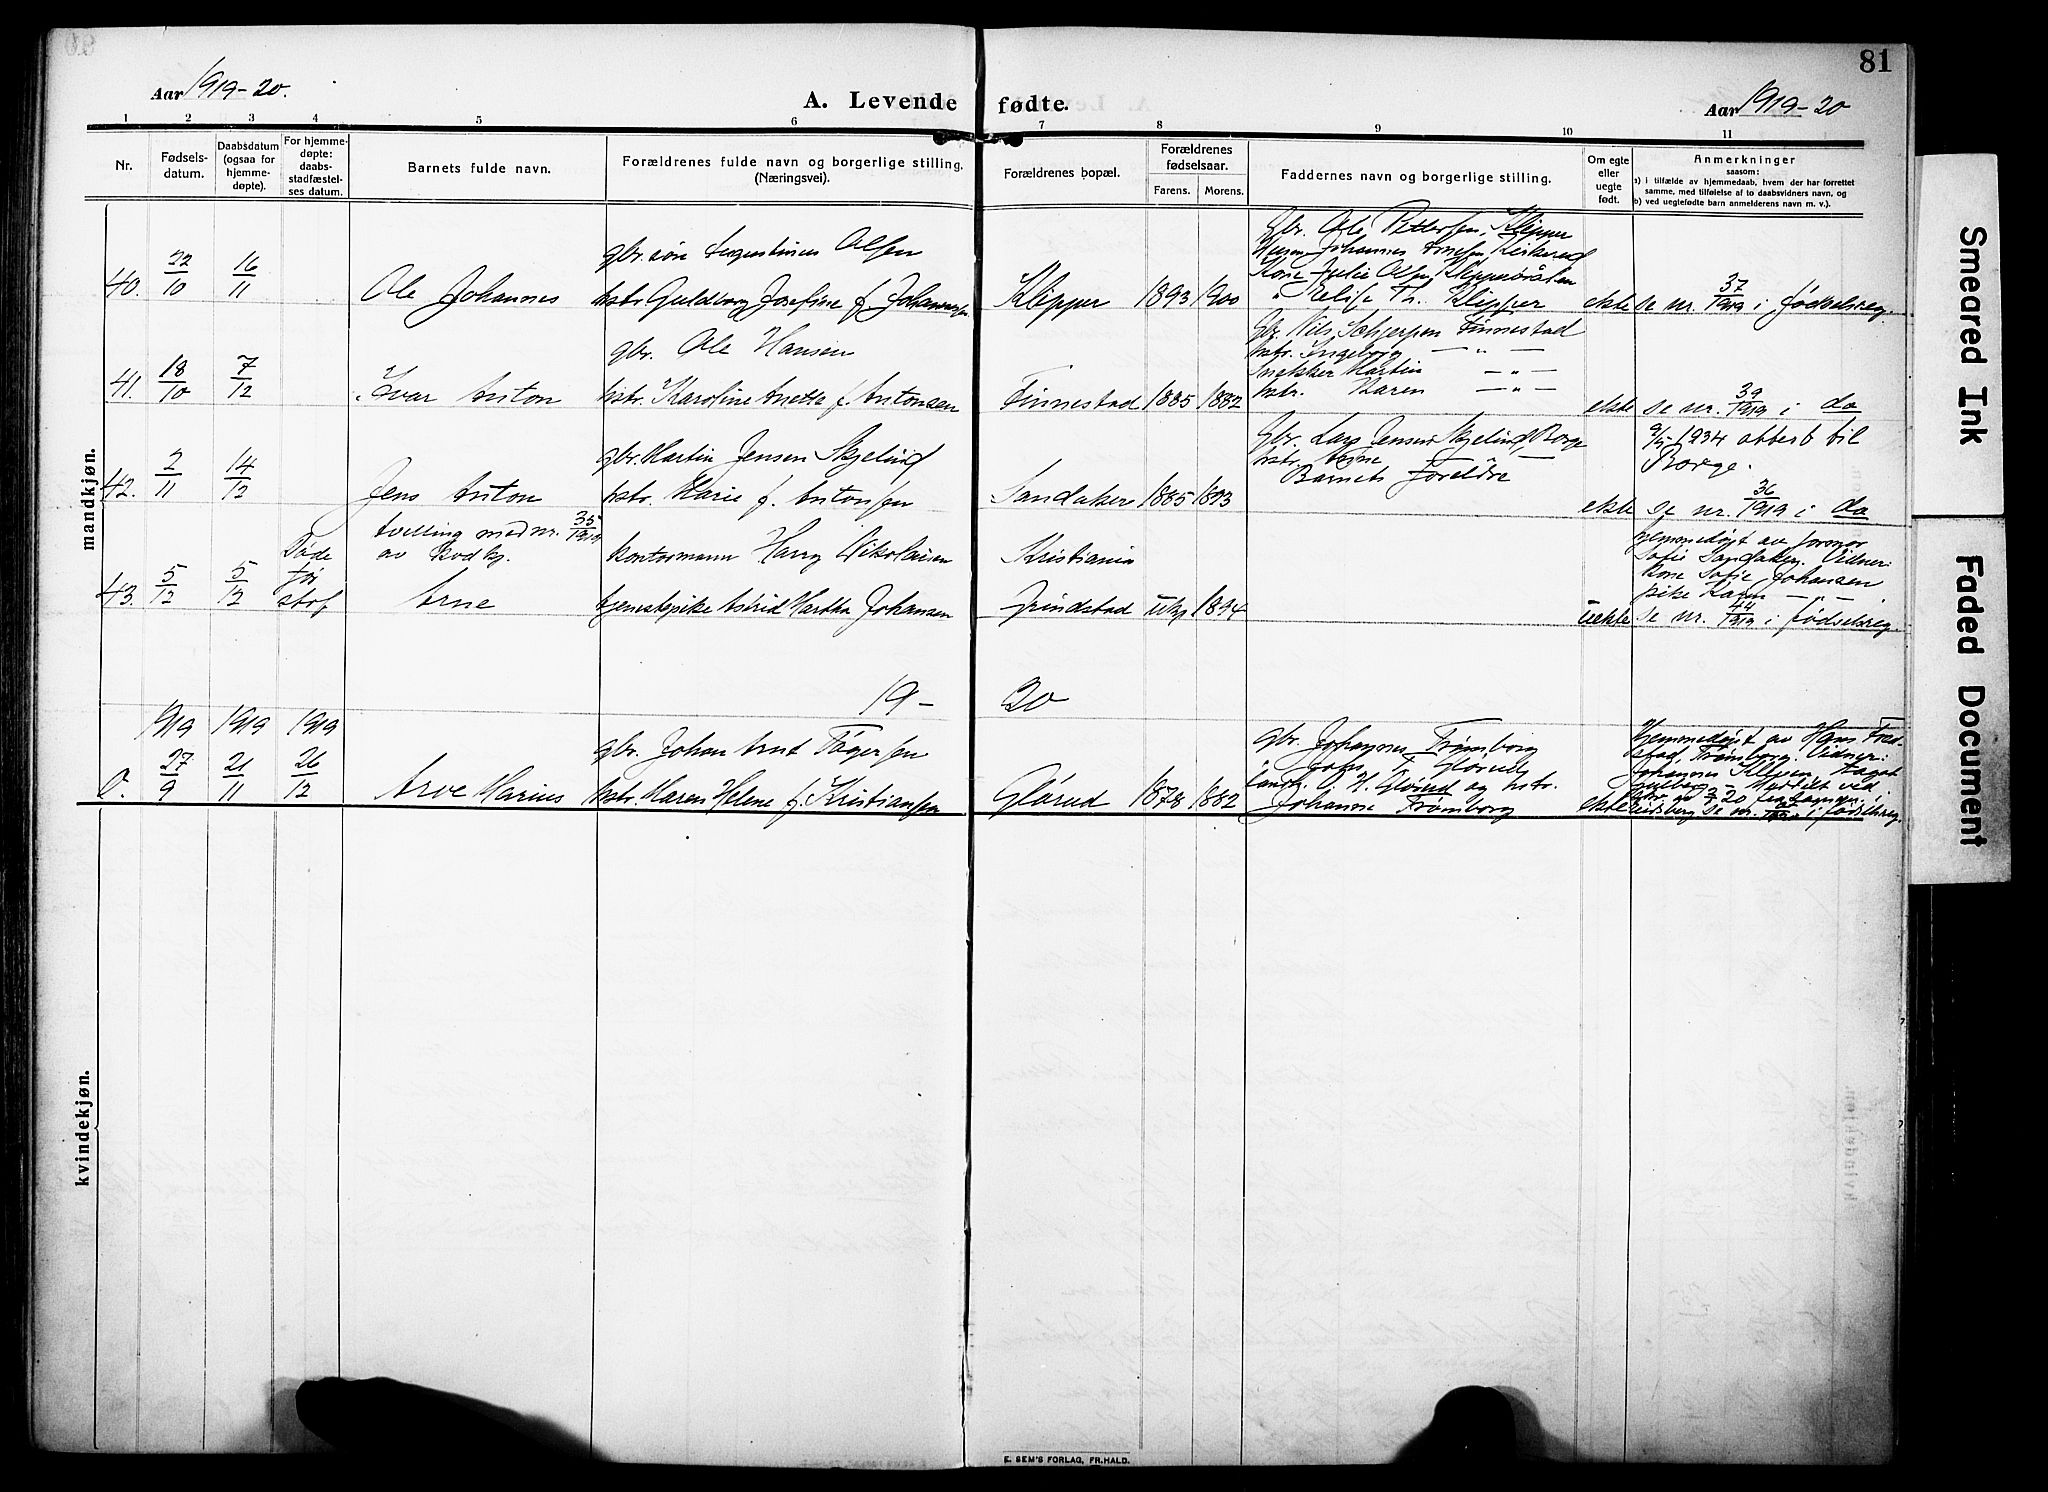 81
Aar 1919-20.
A. Levende fødte.
Aar 1919-20
1 2 3 4 5 6 7 8 9 10 11
Nr.
Fødselsdatum.
Daabsdatum (ogsaa for hjemmedøpte).
For hjemmedøpte: daabsstadfæstelses datum.
Barnets fulde navn.
Forældrenes fulde navn og borgerlige stilling. (Næringsvei).
Forældrenes bopæl.
Forældrenes fødselsaar.
Farens. Morens.
Faddernes navn og borgerlige stilling.
Om egte eller uegte født.
Anmerkninger
saasom:
a) i tilfælde av hjemmedaab, hvem der har forrettet samme, med tilføielse af to daabsvidners navn, og
b) ved uegtefødte barn anmelderens navn m. v.).
mandkjøn.
40. 22/10 16/11 Ole Johannes
gbr. søn Augustinus Olsen
hstr. Guldborg Josefine f. Johannessen
Klipper 1893 1900
Gbr. Ole Pettersen, Klipper
Johannes
Kone Julie Olsen
Th. Klipper
ekte se nr. 37/1919 i fødselsreg.
41. 18/10 7/12 Ivar Anton
gbr. Ole Hansen
hstr. Karoline Anette f. Antonsen
Finnestad 1885 1882
Gbr. Nils Finnestad
hstr. Ingeborg — „ —
Snekker Martin — „ —
hstr. Karen — „ —
ekte se nr. 39/1919 i do
42. 2/11 14/12 Jens Anton
gbr. Martin Jensen Skjelin
hstr. Marie f. Antonsen
Sandaker 1885 1893
Gbr. Lars Jensen Borge
hstr. —
Barnets foreldre
1934 attest til
Borge.
ekte se nr. 36/1919 i do
43. 5/12 5/12 Døde før stadf.
tvilling med nr. 35/1919
av
Arne
kontormann Harry Nikolaisen
tjenestepike Astrid Martha Johansen
Kristiania
Grindstad 1894
hjemmedøpt av jormor
Sofie Sandaker. Vidner:
Kone Sofie Johansen
pike Karen — „ —
uekte se nr. 44/1919 i fødselsreg.
19 - 20
1919 1919 1919
0. 27/9 21/11 26/12 Arve Marius
gbr. Johan Arnt Tøgersen
hstr. Maren Helene f. Kristiansen
Glørud 1878 1882
gbr. Johannes Trømborg
Johs. T. Glørud
H. Glørud og hstr.
Johanne Trømborg
Hjemmedøpt av Hans Fredstad, Trømborg. Vidner:
Johannes
ved
20 fra
ekte Eidsberg se nr. i fødselsreg.
kvindekjøn.
E. SEM'S FORLAG, FR.HALD.
Smeared Ink
Faded Document